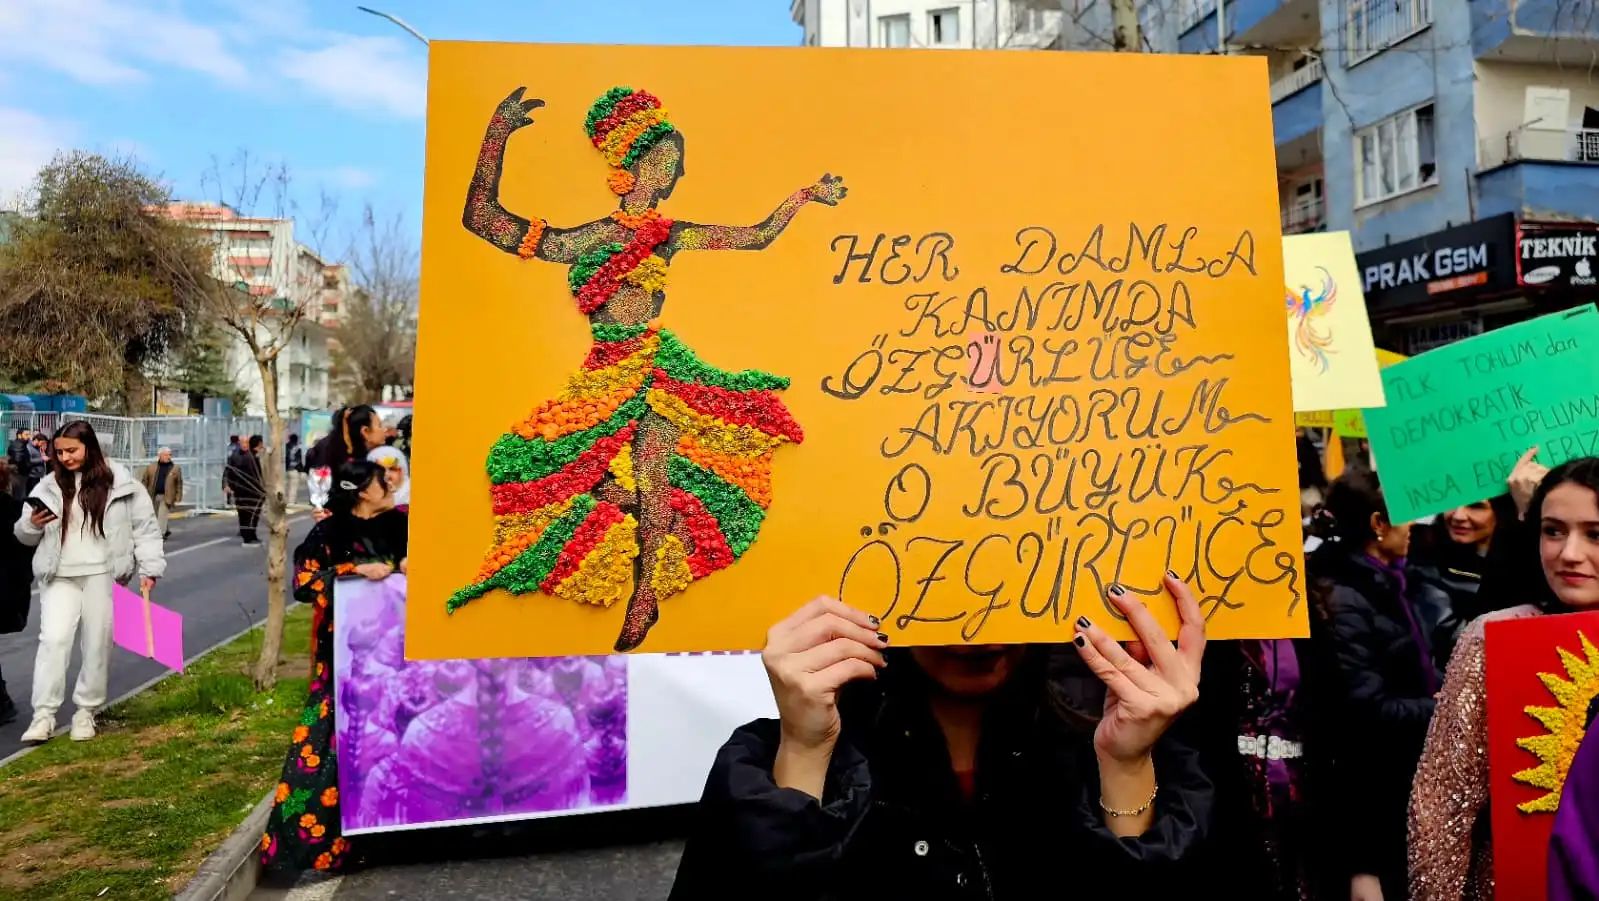 HER DAMLA
KANIMDA
ÖZGÜRLÜĞE
AKIYORUM
O BÜYÜK
ÖZGÜRLÜĞE
PRAK GSM
TEKNİK
SAMSUNG
iPhone
İLK TOHUM'dan
DEMOKRATİK
TOPLUMA
İNŞA EDENLERİZ